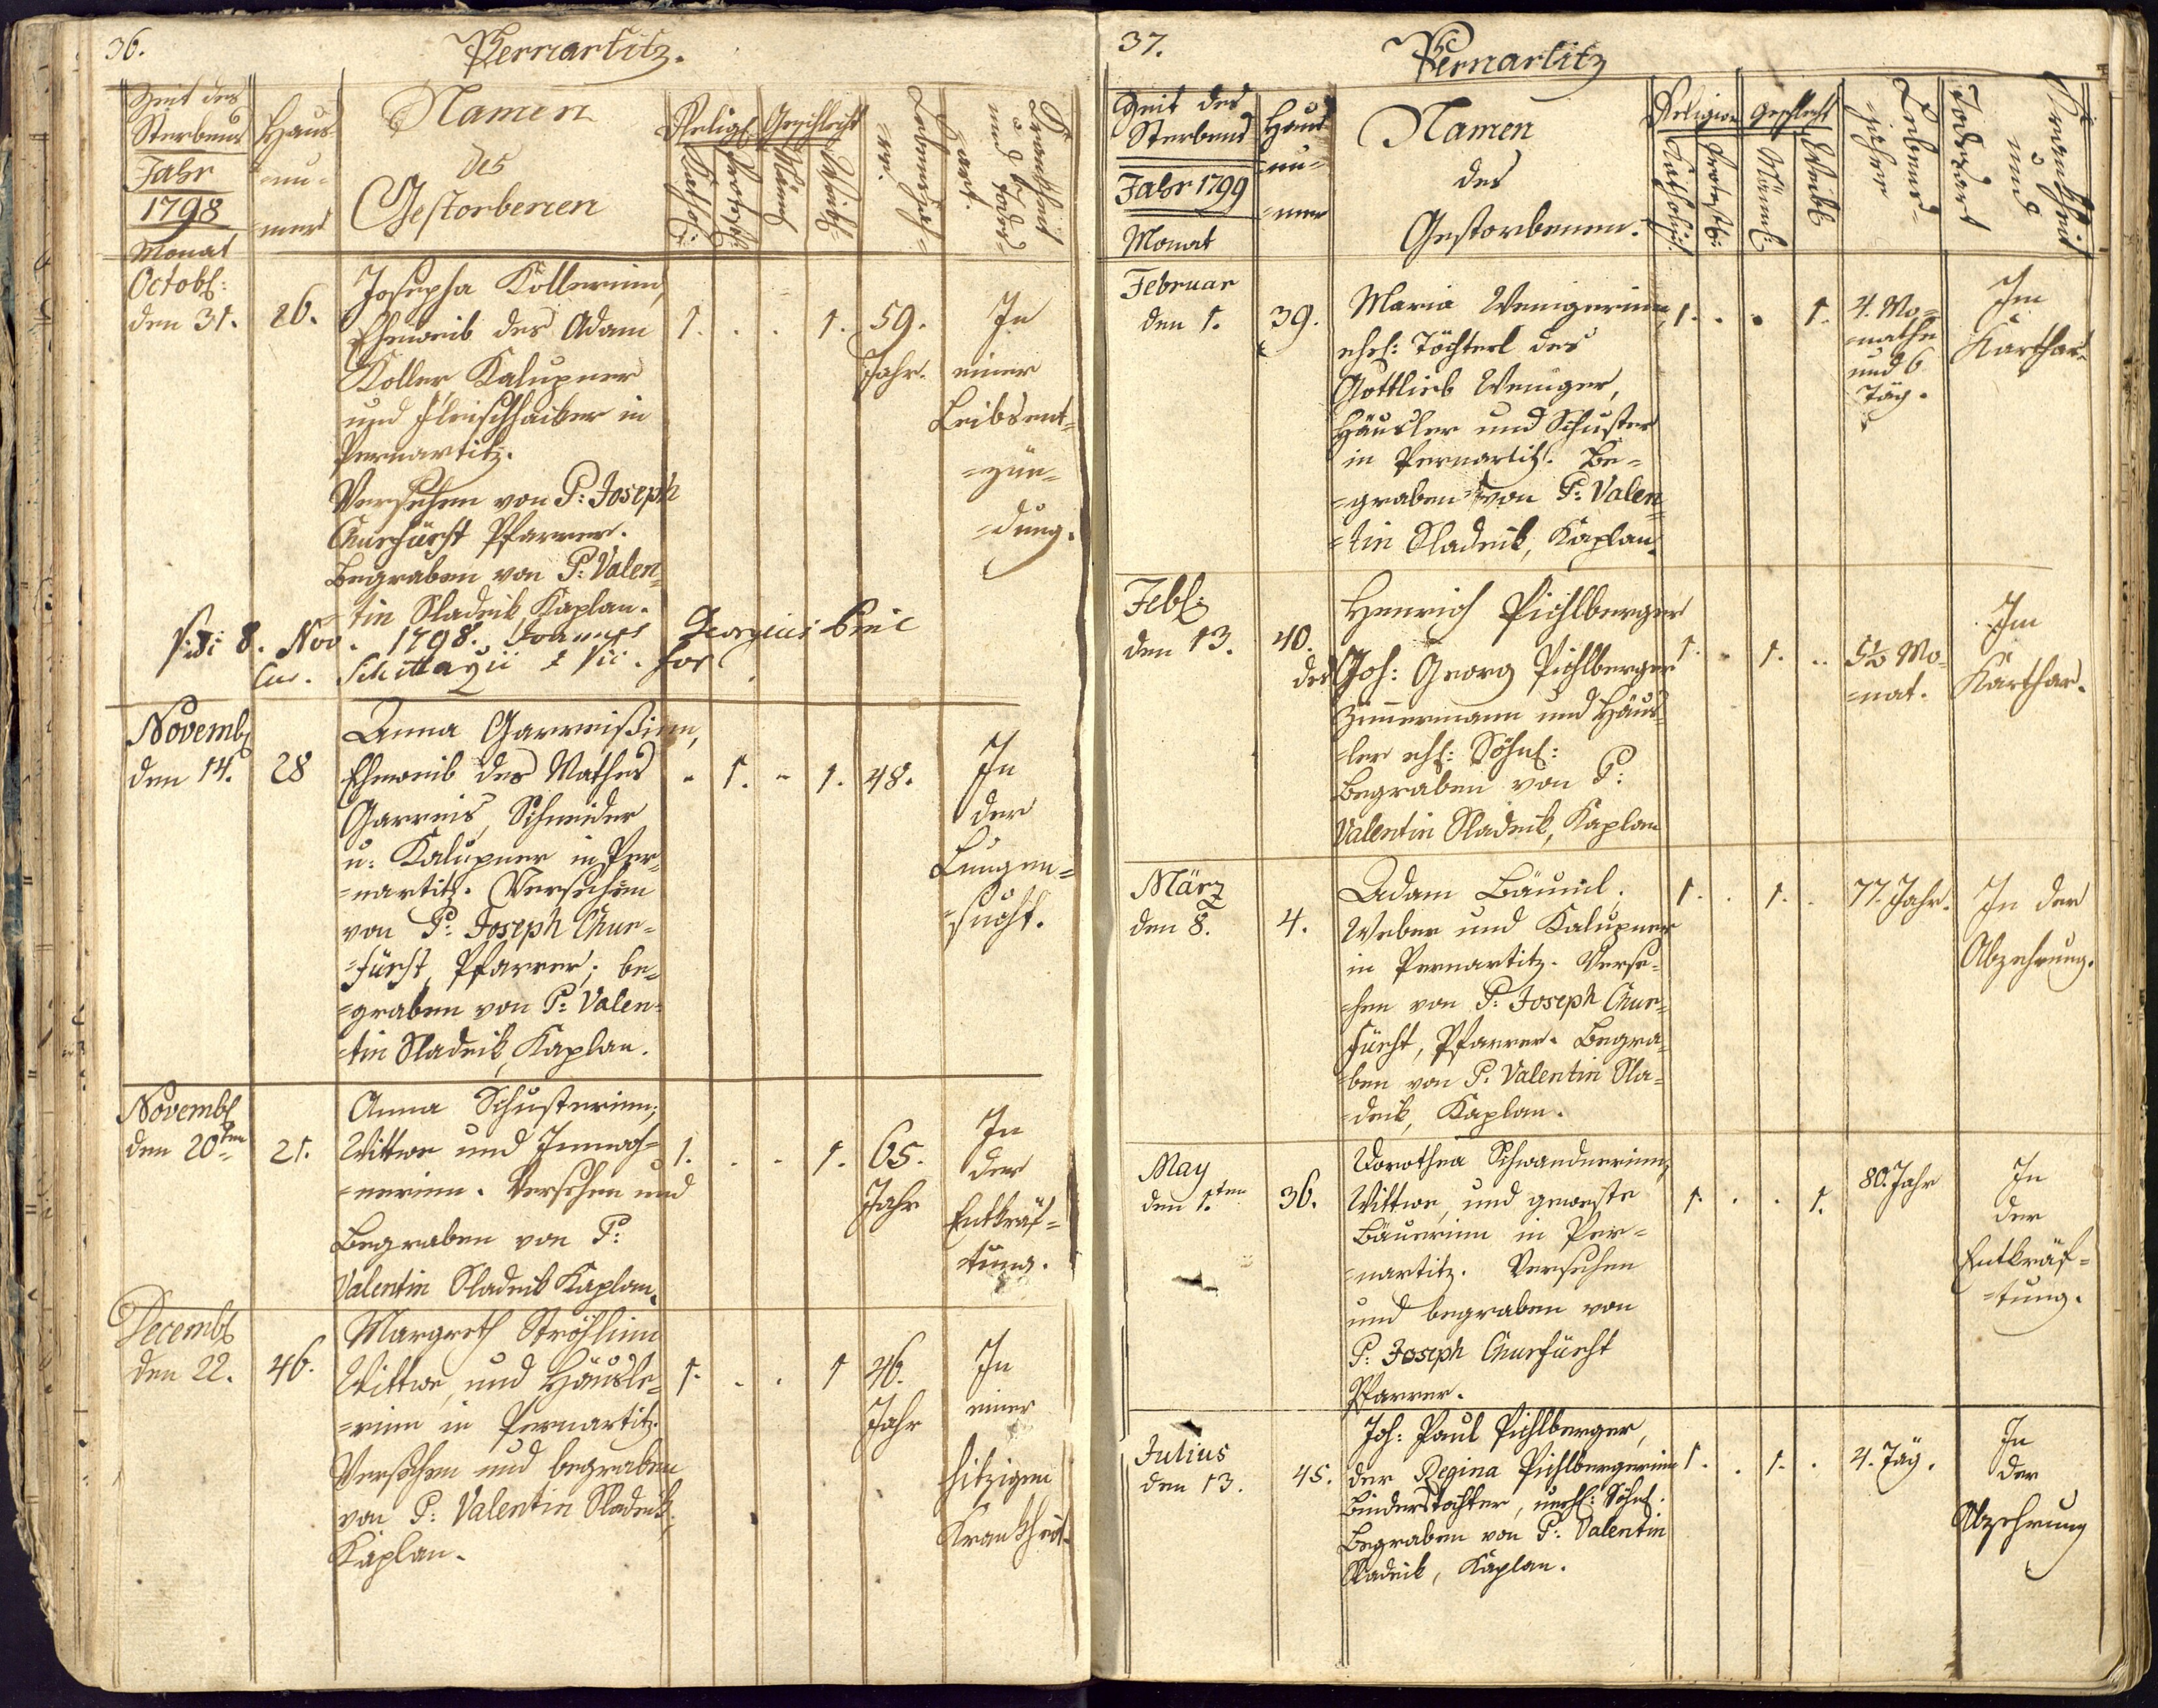 36.
Pernartitz.
Zeit des
Sterbens
Jahr
1798
Monat
Haus
nu=
=mer
Namen
des
Gestorbenen
Relig:
Kathol:
Protest:
Geschlecht
Männl
Weibl=
Lebensjah=
=re.
Krankheit
und Todes=
=art.
Octob:
den 31.
26.
Josepha Kollerinn,
Eheweib des Adam
Koller Kalupner
und Fleischhacker in
Pernartitz.
Versehen von P: Joseph
Churfürst Pfarrer.
Begraben von P: Valen=
=tin Sladeik, Kaplan.
1. . . 1.
59.
Jahr.
In
einer
Leibsent=
=zün=
=dung.
Vidi 8. Nov. 1798. Joannes Georgius
Novemb:
den 14.
28
Anna Garreißinn,
Eheweib des Mathes
Garreis, Schneider
u: Kalupner in Per=
=nartitz. Versehen
von P: Joseph Chur=
=fürst, Pfarrer; be=
=graben von P: Valen=
=tin Sladeik, Kaplan.
- 1. - 1.
48.
In
der
Lungen=
=sucht.
Novemb:
den 20ten
21.
Anna Schusterinn,
Wittwe und Innwoh=
=nerinn. Versehen und
Begraben von P:
Valentin Sladeik Kaplan.
1. . - 1.
65.
Jahr
In
der
Entkräf=
=tung.
Decemb:
den 22.
46.
Margreth Ströhlinn
Wittwe, und Häusle=
=rinn in Pernartitz.
Versehen und begraben
von P: Valentin Sladeik,
Kaplan.
1. . . 1
46.
Jahr
In
einer
hitzigen
Krankheit.
37.
Pernartitz
Zeit des
Sterbens
Jahr 1799
Monat
Haus
nu=
=mer
Namen
des
Gestorbenen.
Religion
Katholisch
Protestt:
Geschlecht
Männl:
Weibl
Lebens=
=jahr
Krankheit
und
Todesart
Februar
den 1.
39.
Maria Wenigerinn,
ehel: Töchterl des
Gottlieb Weniger,
Häusler und Schuster
in Pernartitz. Be=
=graben von P: Valen=
=tin Sladeik, Kaplan.
1. . . 1.
4. Mo=
=nathe
und 6
Täg.
Im
Karthar.
Feb:
den 13.
40.
Henrich Pichlberger
des Joh: Georg Pichlberger
Zimmermann und Häus=
=ler ehl: Söhnl:
Begraben von P:
Valentin Sladeik, Kaplan
1. . 1. ..
5½ Mo=
=nat.
Im
Karthar.
März
den 8.
4.
Adam Bäuml,
Weber und Kalupner
in Pernartitz. Verse=
=hen von P: Joseph Chur=
=fürst, Pfarrer. Begra=
=ben von P: Valentin Sla=
=deik, Kaplan.
1. . 1. .
77. Jahr.
In der
Abzehrung.
May
den 1.ten
36.
Dorothea Schwandnerinn,
Wittwe, und geweste
Bäuerinn in Per=
=nartitz. Versehen
und begraben von
P: Joseph Churfürst
Pfarrer.
1. . . 1.
80. Jahr
In
der
Entkräf=
=tung.
Julius
den 13.
45.
Joh: Paul Pichlberger,
der Regina Pichlbergerinn
Binderstochter, unehl: Söhnl.
Begraben von P: Valentin
Sladeik, Kaplan.
1. . 1. .
4. Täg.
In
der
Abzehrung